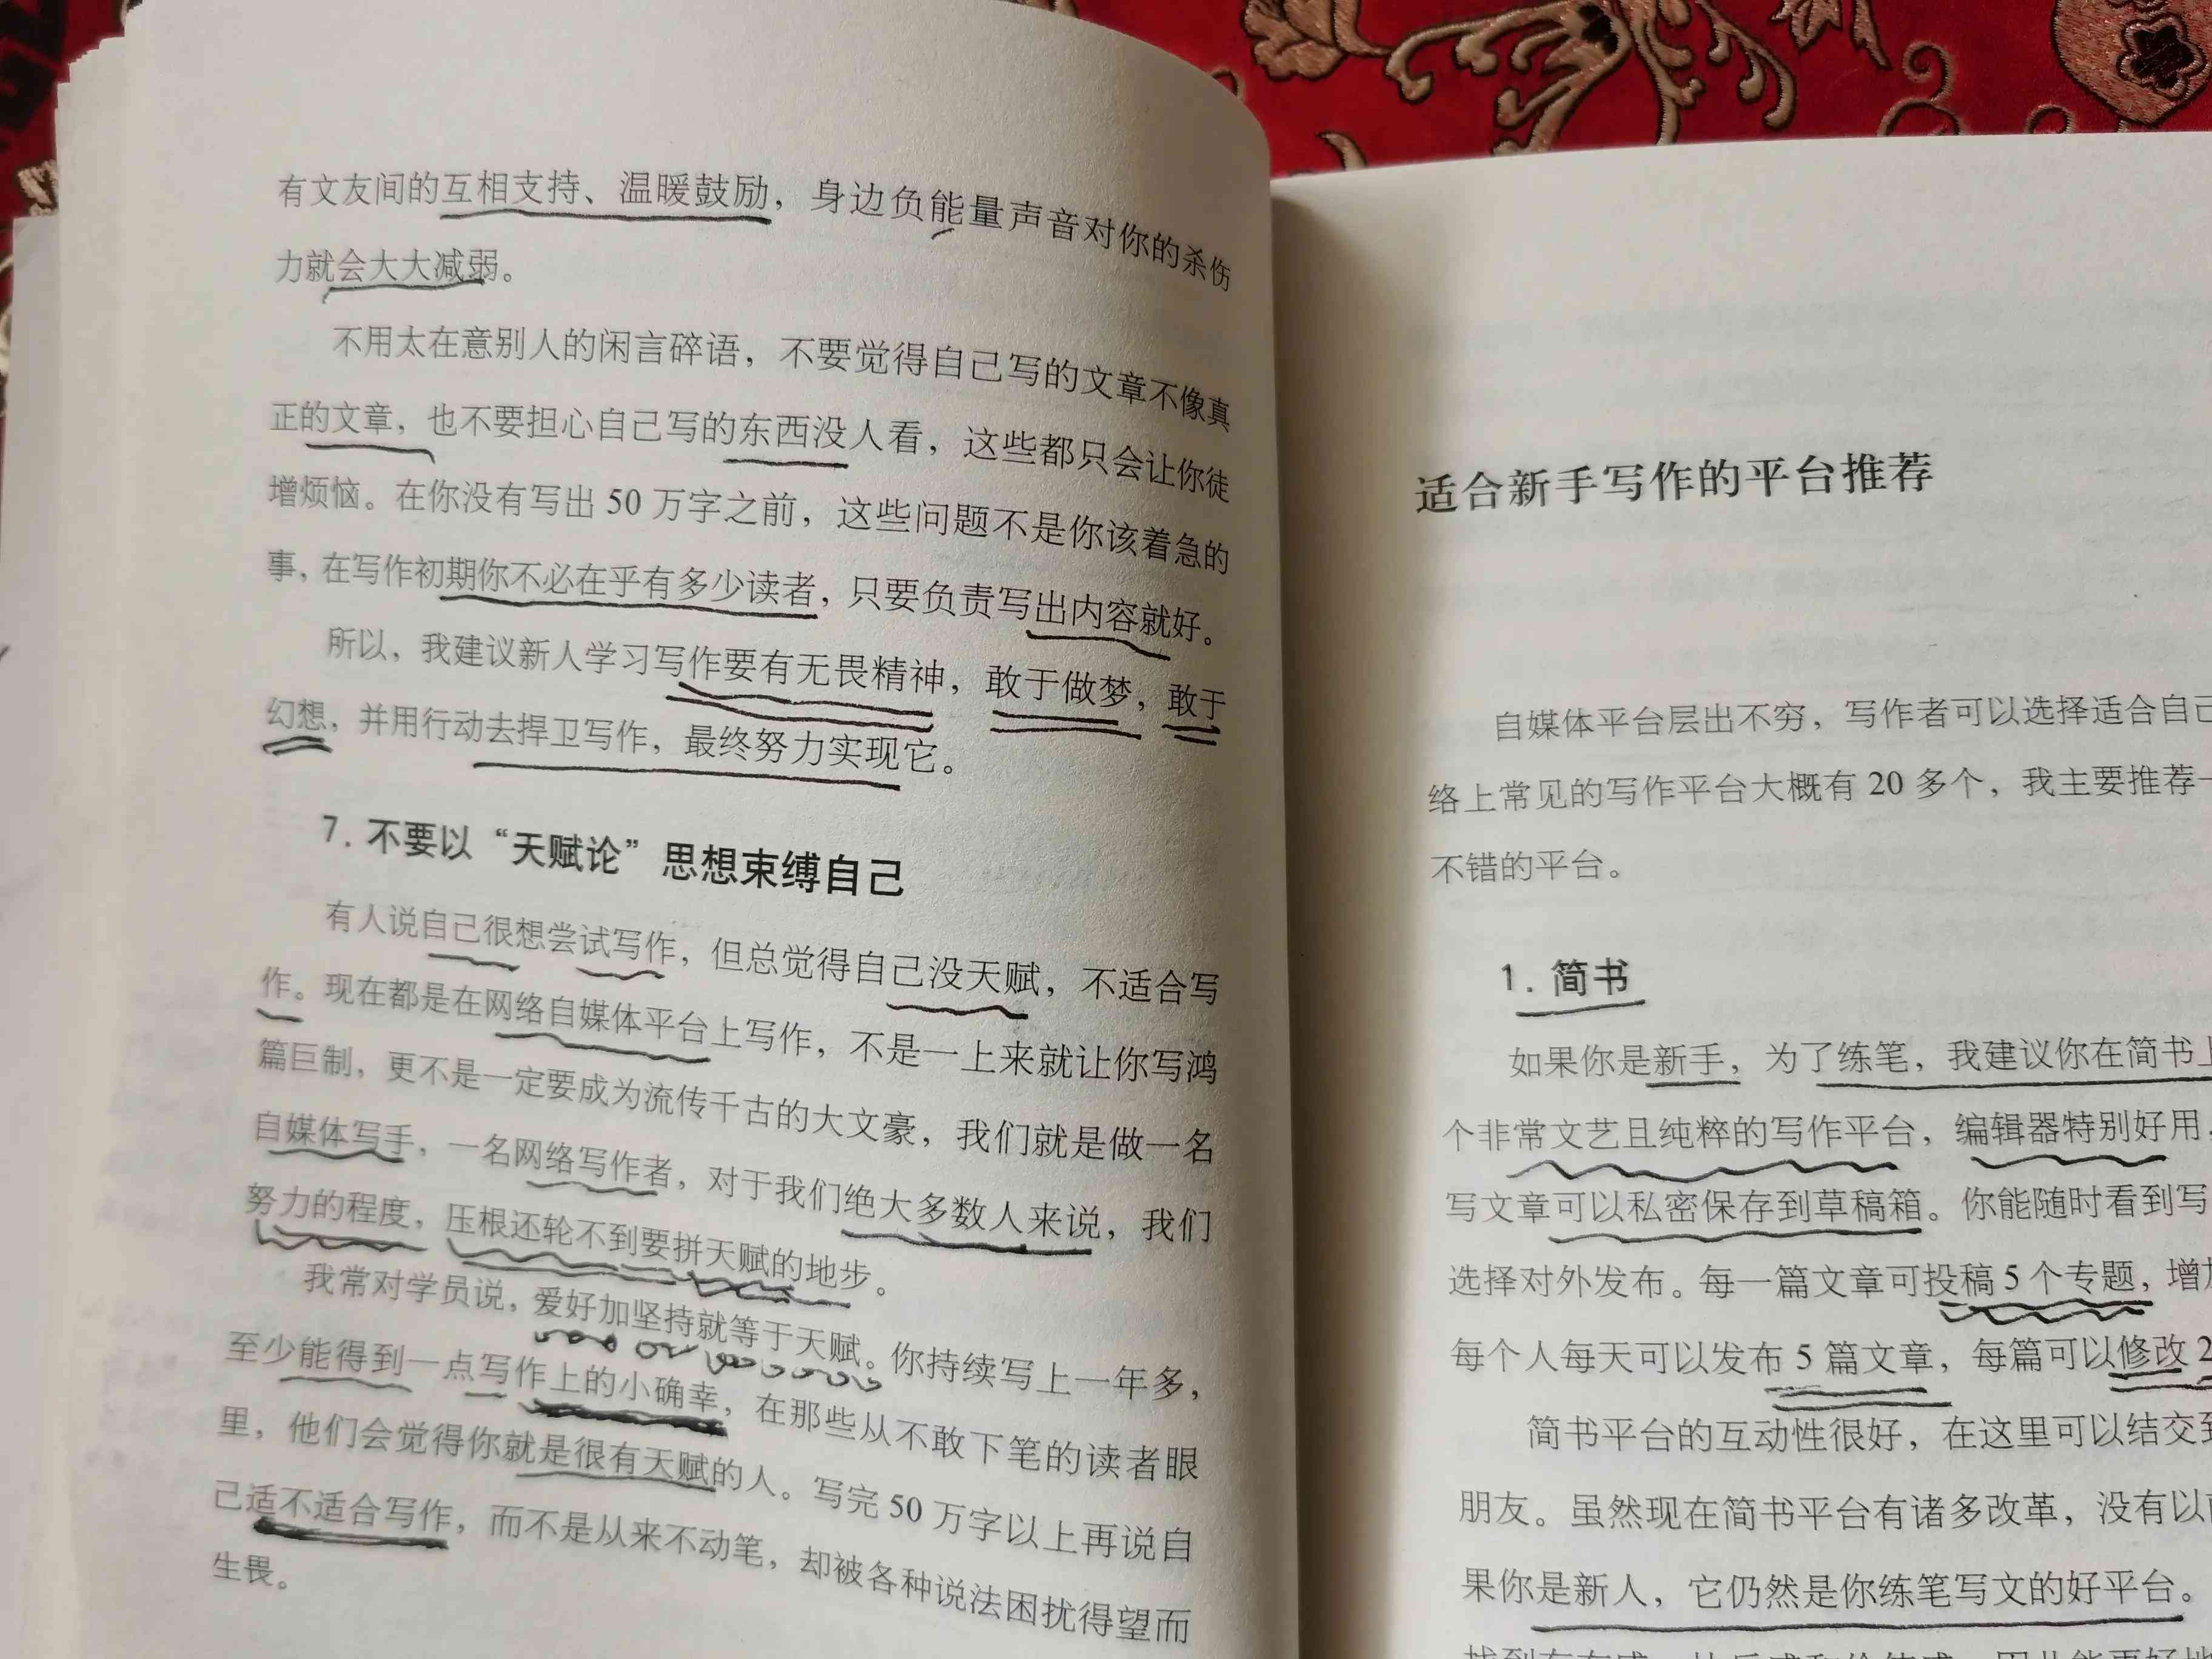 有文友间的互相支持、温暖鼓励，身边负能量声音对你的杀伤
力就会大大减弱。
不用太在意别人的闲言碎语，不要觉得自己写的文章不像真
正的文章，也不要担心自己写的东西没人看，这些都只会让你徒
增烦恼。在你没有写出 50 万字之前，这些问题不是你该着急的
事，在写作初期你不必在乎有多少读者，只要负责写出内容就好。
所以，我建议新人学习写作要有无畏精神，敢于做梦，敢于
幻想，并用行动去捍卫写作，最终努力实现它。
7. 不要以“天赋论”思想束缚自己
有人说自己很想尝试写作，但总觉得自己没天赋，不适合写
作。现在都是在网络自媒体平台上写作，不是一上来就让你写鸿
篇巨制，更不是一定要成为流传千古的大文豪，我们就是做一名
自媒体写手，一名网络写作者，对于我们绝大多数人来说，我们
努力的程度，压根还轮不到要拼天赋的地步。
我常对学员说，爱好加坚持就等于天赋。你持续写上一年多，
至少能得到一点写作上的小确幸，在那些从不敢下笔的读者眼
里，他们会觉得你就是很有天赋的人。写完 50 万字以上再说自
己适不适合写作，而不是从来不动笔，却被各种说法困扰得望而
生畏。
适合新手写作的平台推荐
自媒体平台层出不穷，写作者可以选择适合自己
络上常见的写作平台大概有 20 多个，我主要推荐一
不错的平台。
1. 简书
如果你是新手，为了练笔，我建议你在简书上
个非常文艺且纯粹的写作平台，编辑器特别好用，
写文章可以私密保存到草稿箱。你能随时看到写
选择对外发布。每一篇文章可投稿 5 个专题，增加
每个人每天可以发布 5 篇文章，每篇可以修改 2
简书平台的互动性很好，在这里可以结交到
朋友。虽然现在简书平台有诸多改革，没有以前
果你是新人，它仍然是你练笔写文的好平台。